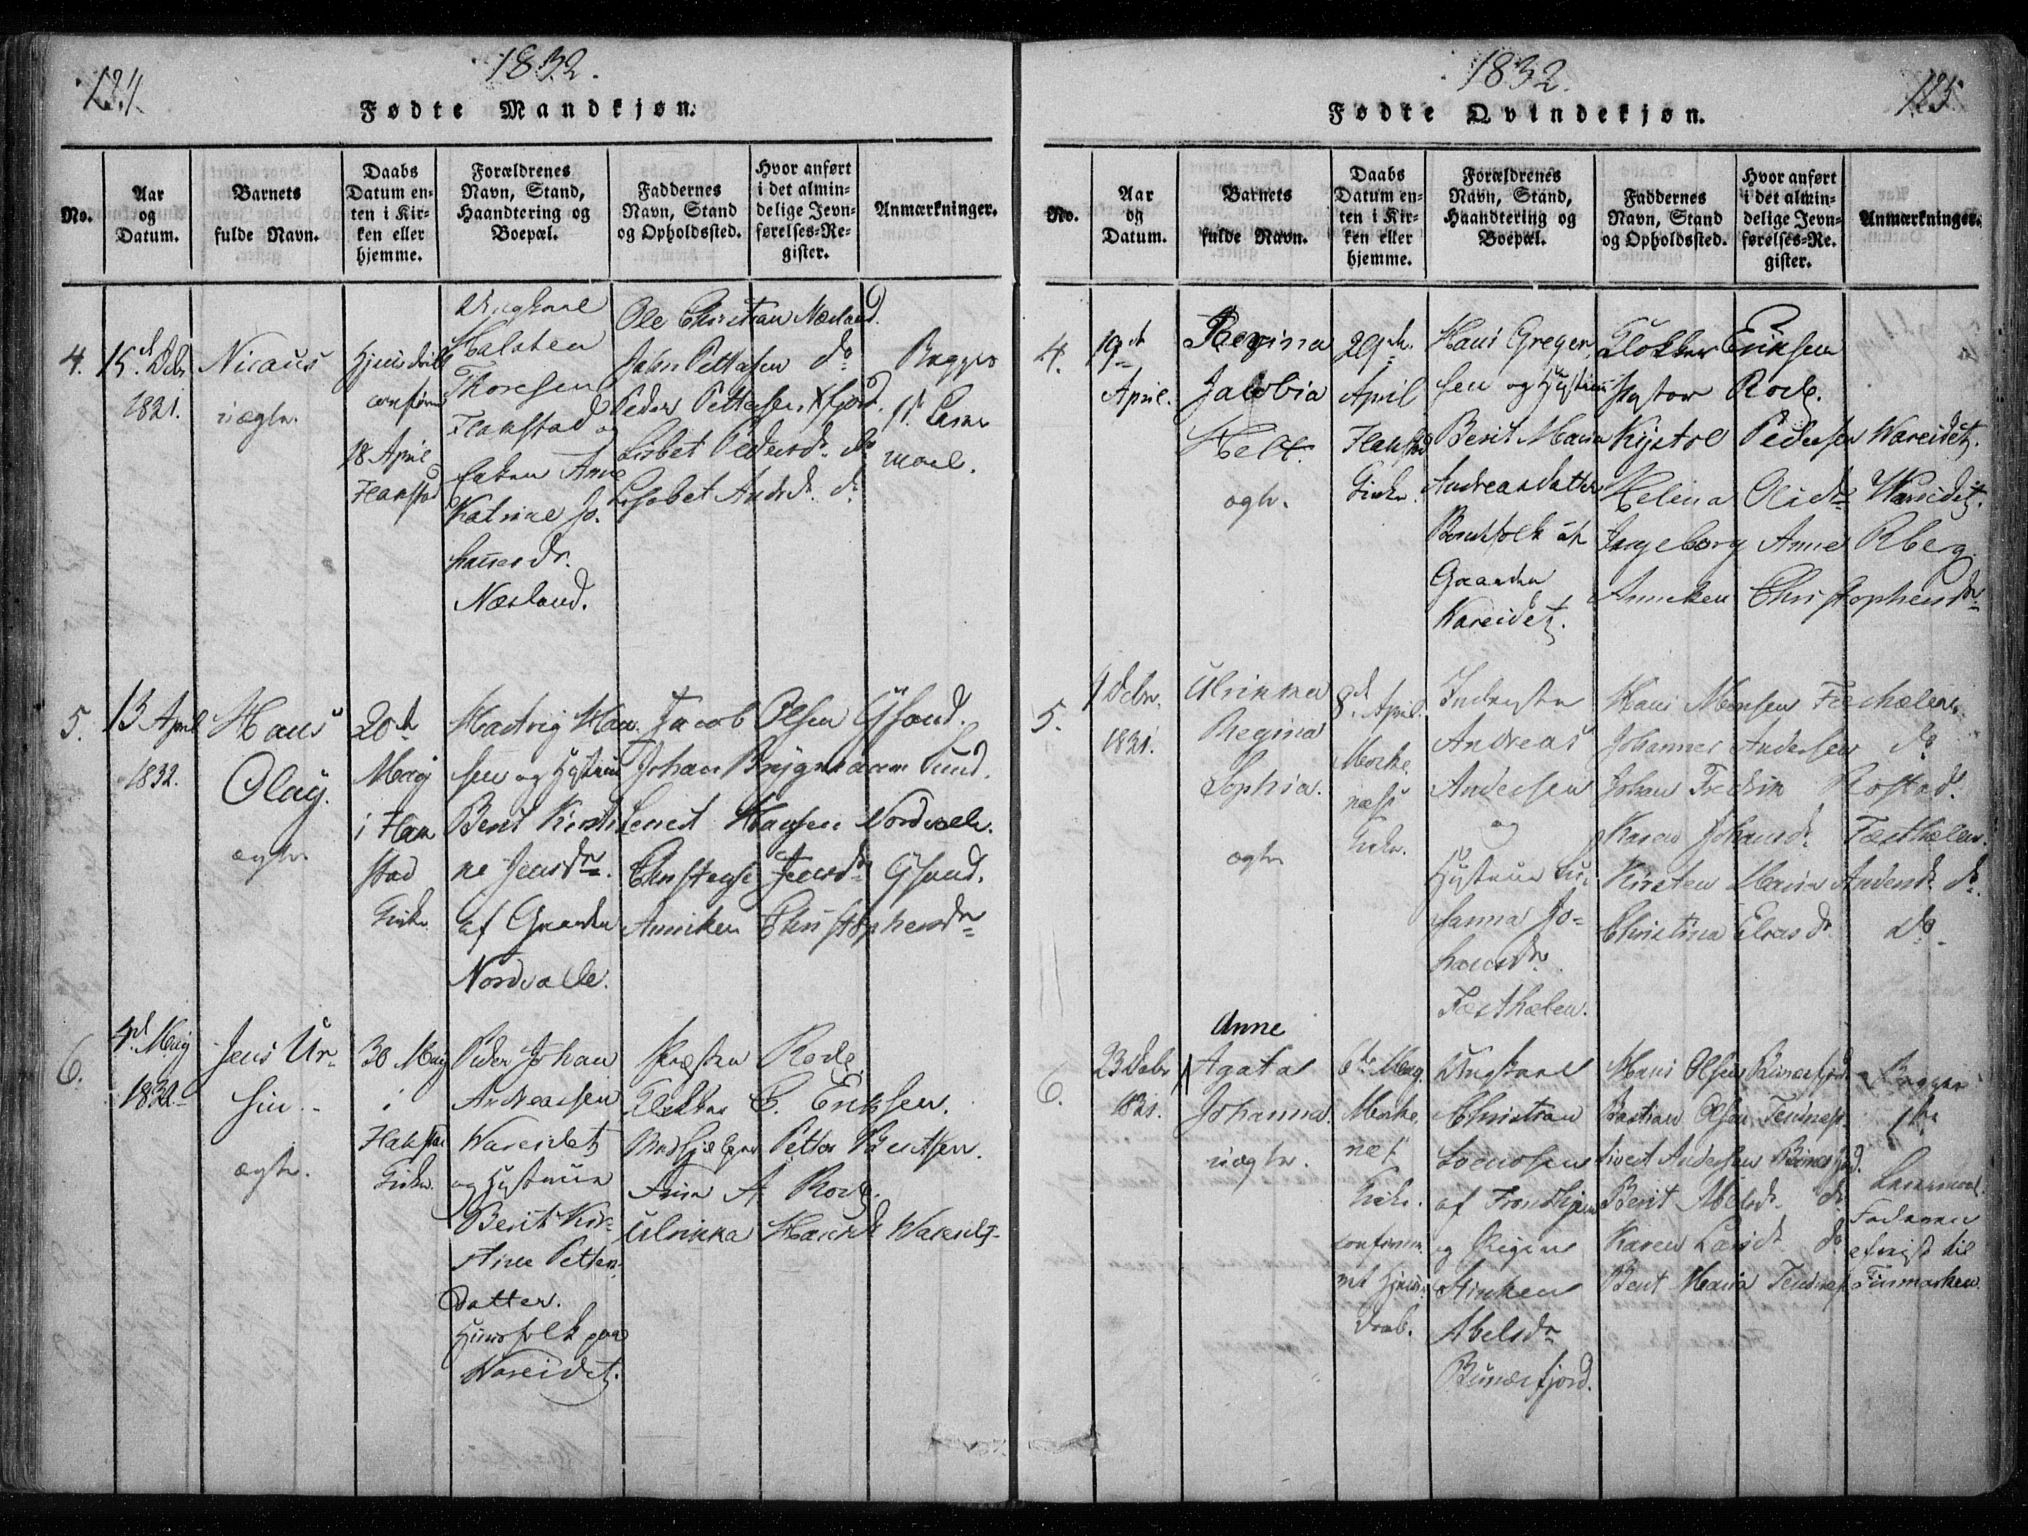 1832.
Fødte Mandkjøn.
No.
Aar
og
Datum.
Barnets
fulde Navn.
Daabs
Datum en-
ten i Kir-
ken eller
hjemme.
Forældrenes
Navn, Stand,
Haandtering og
Boepæl.
Faddernes
Navn, Stand
og Opholdssted.
Hvor anført
i det almin-
delige Jevn-
førelses-Re-
gister.
Anmærkninger.
4.
15 Debr.
1831.
Nicaus
uægte.
Hjemdøbt
confirm
18 April
Flakstad
Ungkarl
Halsten
Thoresen
Flakstad og
Anne
Katrine Jo-
hansdr.
Næsland.
Ole Christian Næsland.
John Pettersen do
Peder Pettersen fjord.
Lisbet Pedersdr. do
Lisbet Andrdr. do
Begges
1st Leier
maal.
5.
13 April
1832.
Hans
Olay.
ægte
20de
May
i Flak
stad
Kirke
Hartvig Han-
sen og Hustrue
Berit Kirsti-
ne Jensdr.
af Gaarden
Nordvalle.
Jacob Olsen Ysand.
Johan Brygmann Sund.
Hansen Nordvale.
Jensdr Ysand.
Anniken Christophersdr
6.
4de May
1832
Jens Ur-
sin.
ægte.
30 May
i
Flakstad
Kirke.
Peder Johan
Andreassen
Vareidet
og Hustrue
Berit Kir-
stine Petter
datter.
Huusfolk paa
Vareidet.
Præsten Rode.
Klokker C. Eriksen.
Medhjelper Petter Bentsen.
Frue A. Rode.
Ulrikka Hansdr Vareidet
1832.
125.
Fødte Qvindekjøn.
No.
Aar
og
Datum.
Barnets
fulde Navn.
Daabs
Datum en-
ten i Kir-
ken eller
hjemme.
Forældrenes
Navn, Stand,
Haandtering og
Boepæl.
Faddernes
Navn, Stand
og Opholdssted.
Hvor anført
i det almin-
delige Jevn-
førelses-Re-
gister.
Anmærkninger.
4.
19de
April.
Regina
Jacobia
Helt.
ægte.
29de
April
Flakstad
Kirke.
Hans Greger
sen og Hustrue
Berit Maria
Andreasdatter
Boendfolk af
Gaarden
Vareidet.
Klokker Eriksen
Pastor Rode.
Pedersen Vareidet.
Helena Olsdr Vareidet.
Ingeborg Anne Rberg.
Anneken Christophersdr
5.
1 Debr.
1831.
Ulrikka
Regina
Sophia.
ægte
8de April.
Moske
næs
Kirke.
Andreas
Andersen
og
Hustrue Su-
sanna Jo-
hansdr.
Fæsthælen.
Hans Monsen Fæsthælen.
Johannes Andersen do
Johan Fredrik Rostad.
Karen Johansdr. Fæsthælen.
Kirsten Maria Andersdr. do
Christina Eliasdr. do
6.
23 Debr
1831.
Anne
Agata
Johanna.
uægte.
6te May.
Moske
næs
Kirke.
confirme
ret Hjem
daab.
Ungkarl
Christian
af Trondhjem
og Pigen
Aniken
Abelsdr
Bunæsfjord.
Hans Olsen Bunesfjord
Bastian Olsen Tennæs
Sivert Andersen Bunesfjord.
Berit Abelsdr. do
Karen Larsdr. do
Berit Maria Tennæs
Begges
1ste
Leiermaal.
Faderen
afreist til
Finmarken.